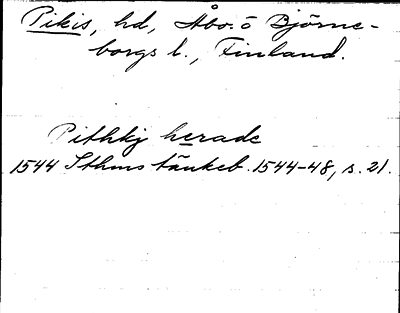 Pikis, hd, Åbo. o Björne-
borgs l., Finland.
Pithkj herade
1544 Sthms tänkeb. 1544-48, s. 21.